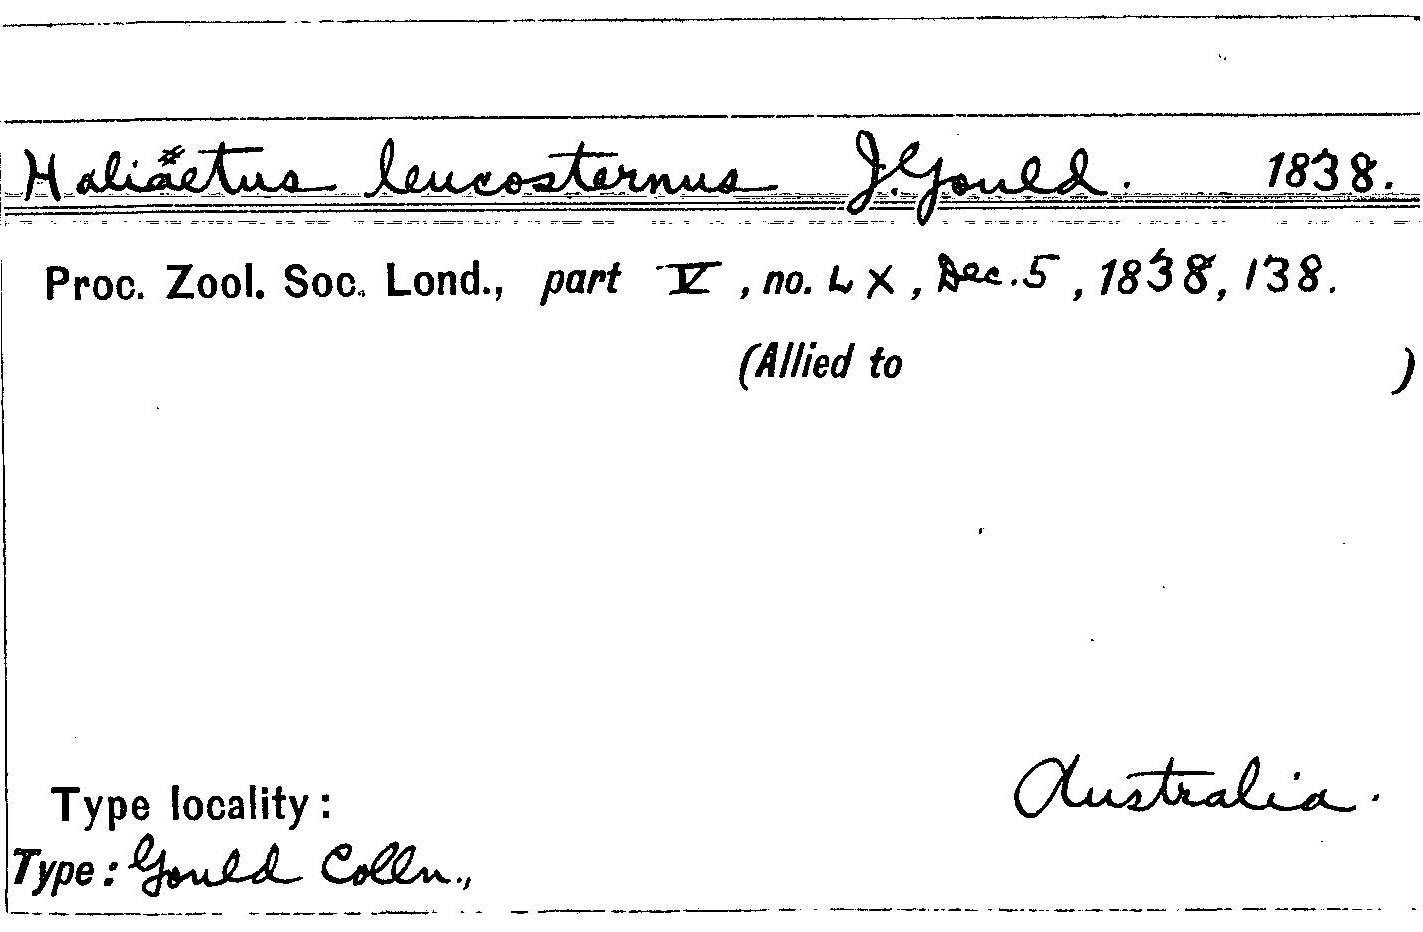 Haliäetus leucosternus J. Gould. 1838.
Proc. Zool. Soc. Lond., part V, no. LX, Dec. 5, 1838, 138.
(Allied to )
Type locality: Australia.
Type: Gould Colln.,